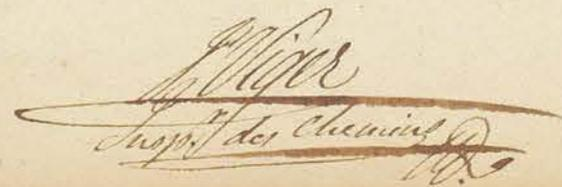 J. Viger
Insp.r des chemins